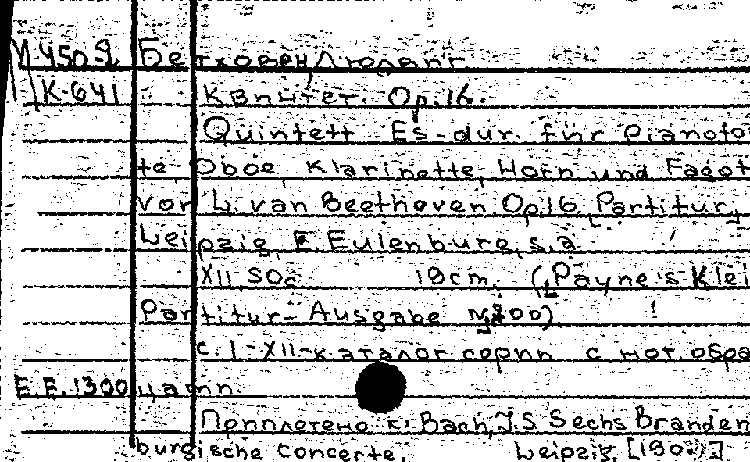 М 450-2 Бетховен, Людвиг
К-641 Квинтет. Op.16.
Quintett Es-dur. für Pianofo
te Oboe, Klarinette, Horn und Fagot
von L. van Beethoven Op16 Partitur,
Leipzig, E. Eulenburg, s.a.
XII, 50c 19cm. (Payne's Klei
Partitur-Ausgabe
с. I-XII-каталог серии с нот. обра
E.E. 1300 цами.
Приплетено к: Bach, J.S. Sechs Branden
burgische Concerte. Leipzig,